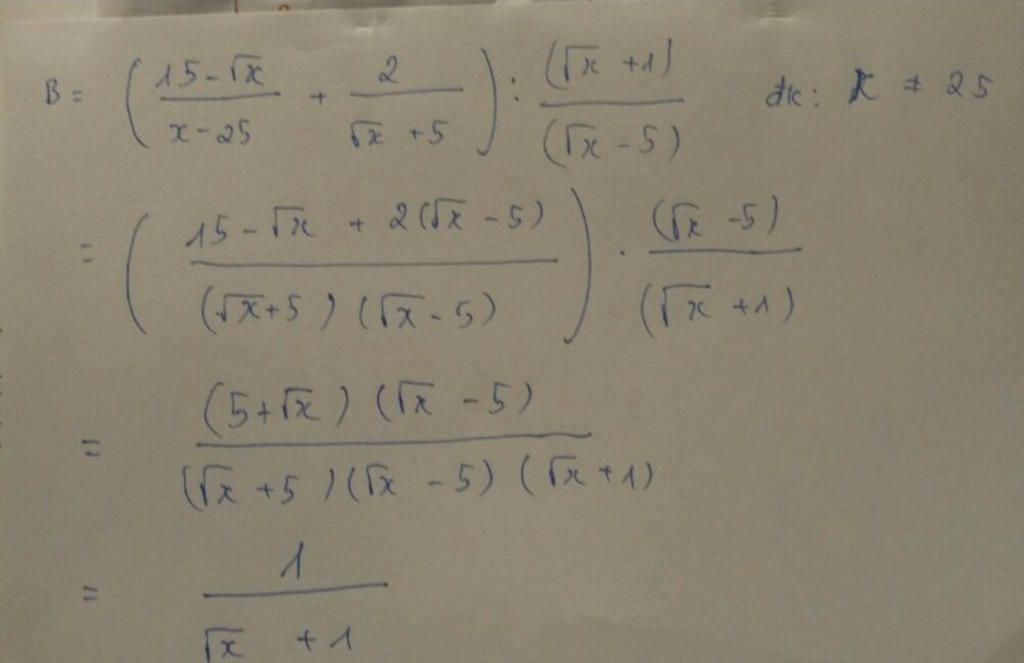 B = ( (15 - √x)/(x - 25) + 2/(√x + 5) ) : (√x + 1)/(√x - 5) đk: x ≠ 25
= ( (15 - √x + 2(√x - 5))/((√x + 5)(√x - 5)) ) . (√x - 5)/(√x + 1)
= ((5 + √x)(√x - 5))/((√x + 5)(√x - 5)(√x + 1))
= 1/(√x + 1)